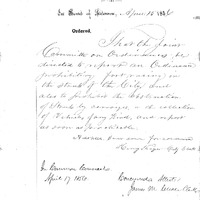 In Board of Aldermen, April 16 185
Ordered,
That the Joint
Committee on Ordinances be
directed to report an Ordinance
prohibiting fast racing in
the streets of the City and
also to prohibit the obstruction
of Streets by carriages, or the collection
of Vehicles of any kind, and report
as soon as practicable.
Passed sent down for concurrence
In Common Council
April 17 185
Concurred Attest
James M.